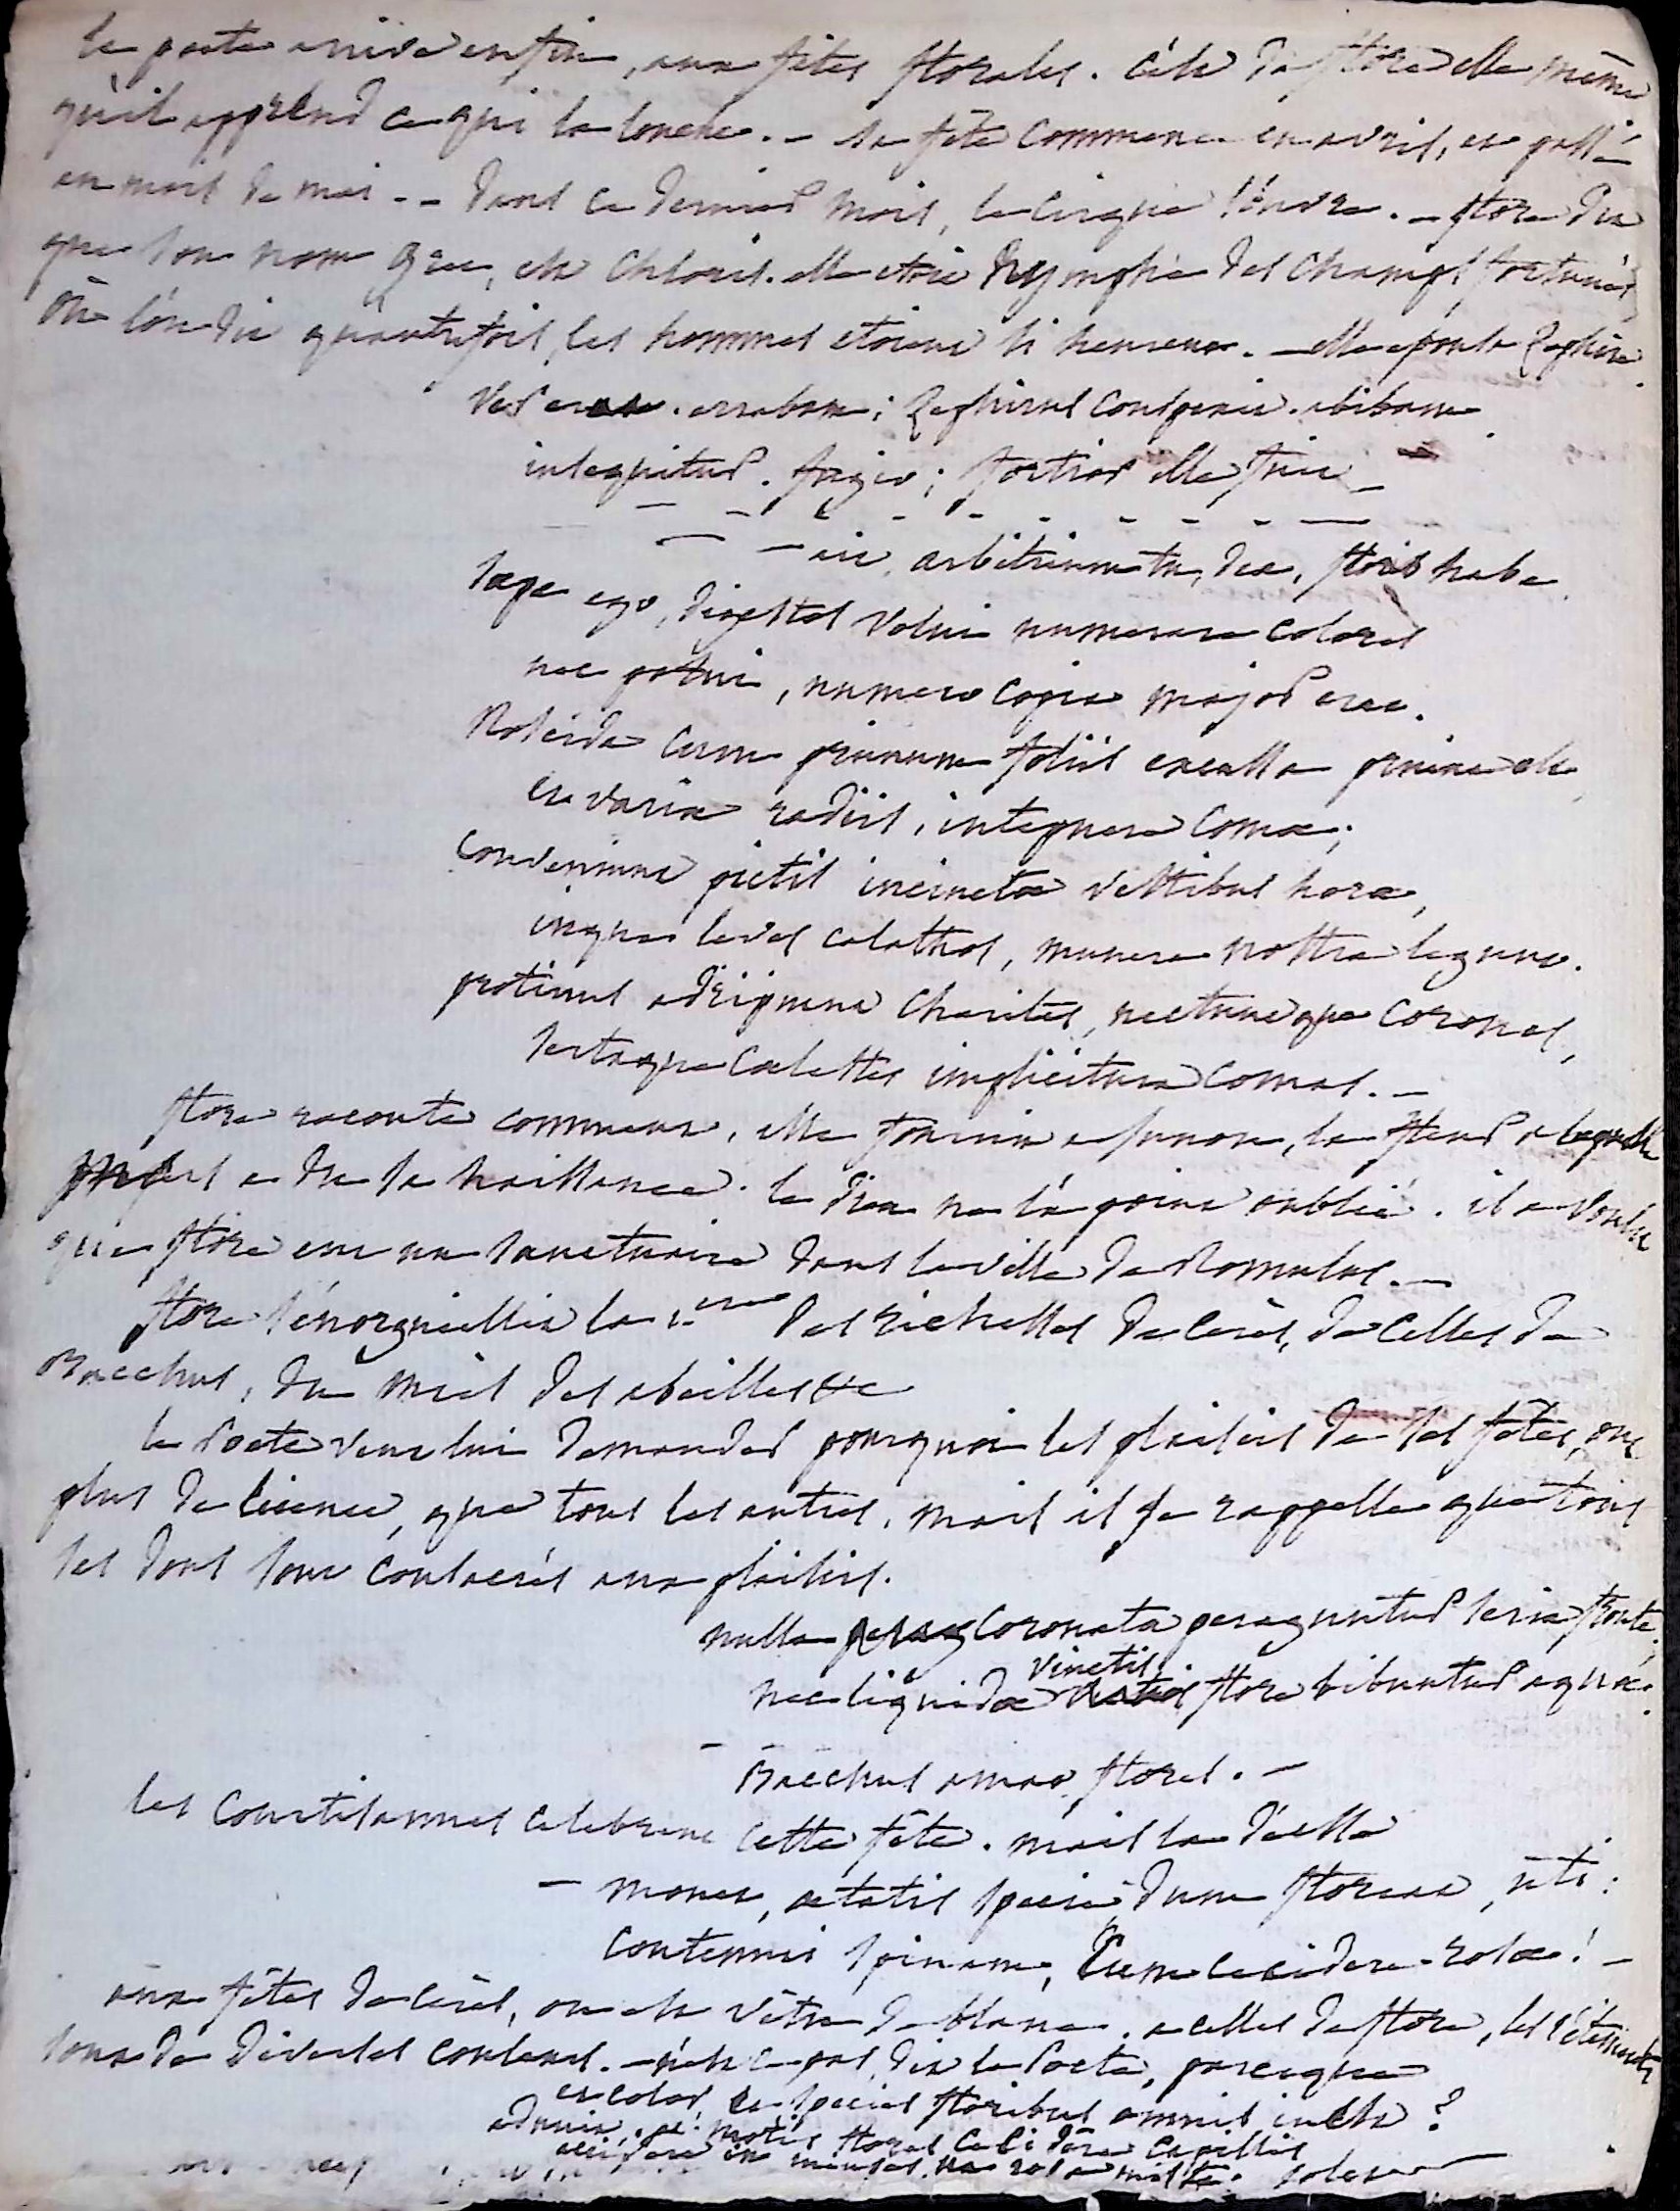 le poete arrive enfin, aux fêtes florales. c'est de flore elle même
qu'il apprend ce qui la touche. - sa fête commence en avril, et passe
au mois de mai. - dans ce dernier mois, le cirque s'ouvre. - flore dit
que son nom grec, est Chloris. elle etoit nymphe des champs fortunés
où l'on dit qu'autrefois, les hommes etoient si heureux. - elle epousa Zephire.
Ver erat. errabam; Zephirus conspexit. abibam
insequitur. fugio; fortior ille fuit -
- ait, arbitrium tu, dea, floris habe.
saepe ego, digestos volui numerare colores
nec potui, numero copia major erat.
Roscida cum primum foliis excussa pruina est
et variae radiis, intepuere comae;
conveniunt pictis incinctae vestibus horae,
inque leves calathos, munera nostra legunt.
protinus adripiunt charites, nectuntque coronas,
sertaque caelestes implicitura comas. -
flore raconte comment, elle fournit a Junon, la fleur a laquelle
mars a du sa naissance. le dieu ne l'a point oublié. il a voulu
que flore eut un sanctuaire dans la ville de Romulus. -
flore s'énorgueillit des richesses de Cerès, de celles de
Bacchus, du miel des abeilles &c
le Poete veut lui demander pourquoi les plaisirs de ses fêtes, ont
plus de licence, que tous les autres, mais il se rappelle que tous
ses dons sont consacrés aux plaisirs.
nulla coronata peraguntur seria fronte,
nec liquidae vinctis flore bibuntur aquae.
- Bacchus amat flores. -
les Courtisannes celebrent cette fête. mais la déesse
- monet, aetatis specie, dum floreat, uti:
contemni spinam, cum cecidere rosae! -
aux fêtes de Cerès, on est vêtu de blanc. a celles de flore, les vêtements
sont de diverses couleurs. - n'est ce pas, dit le Poete, parceque
et color, et species floribus omnis inest?
adnuit, et motis flores cecidere capillis
accidere in mensas ut rosa missa solet -